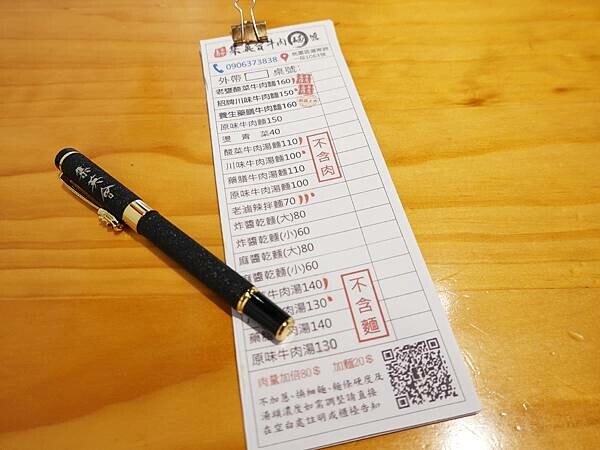 集英會牛肉麵
0906373838
桃園區國際路
一段1063號
外帶 桌號:
老甕酸菜牛肉麵160
招牌川味牛肉麵150
養生藥膳牛肉麵160
原味牛肉麵150
燙 青 菜40
酸菜牛肉湯麵110
川味牛肉湯麵100
藥膳牛肉湯麵110
原味牛肉湯麵100
不含肉
老滷辣拌麵70
炸醬乾麵(大)80
炸醬乾麵(小)60
麻醬乾麵(大)80
麻醬乾麵(小)60
牛肉湯140
牛肉湯130
藥膳牛肉湯140
原味牛肉湯130
不含麵
肉量加倍80$ 加麵20$
不加蔥、換細麵、麵條硬度及
湯頭濃度如需調整請直接
在空白處註明或櫃檯告知
集英會